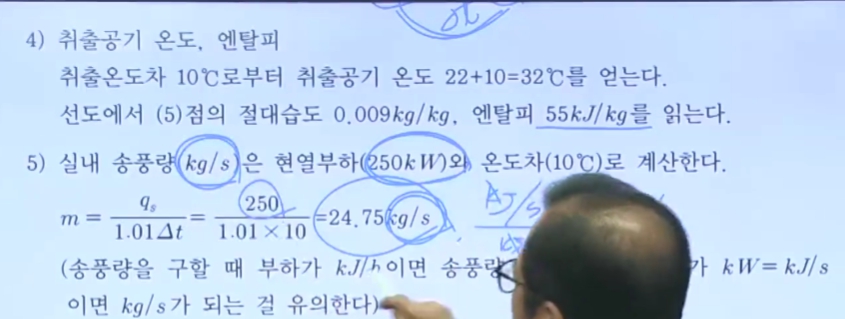 4) 취출공기 온도, 엔탈피
취출온도차 10℃로부터 취출공기 온도 22+10=32℃를 얻는다.
선도에서 (5)점의 절대습도 0.009kg/kg, 엔탈피 55kJ/kg를 읽는다.
5) 실내 송풍량(kg/s)은 현열부하(250kW)와 온도차(10℃)로 계산한다.
m = q_s / 1.01Δt = 250 / 1.01×10 =24.75kg/s
kJ/s
(송풍량을 구할 때 부하가 kJ/h이면 송풍량 가 kW=kJ/s
이면 kg/s가 되는 걸 유의한다)